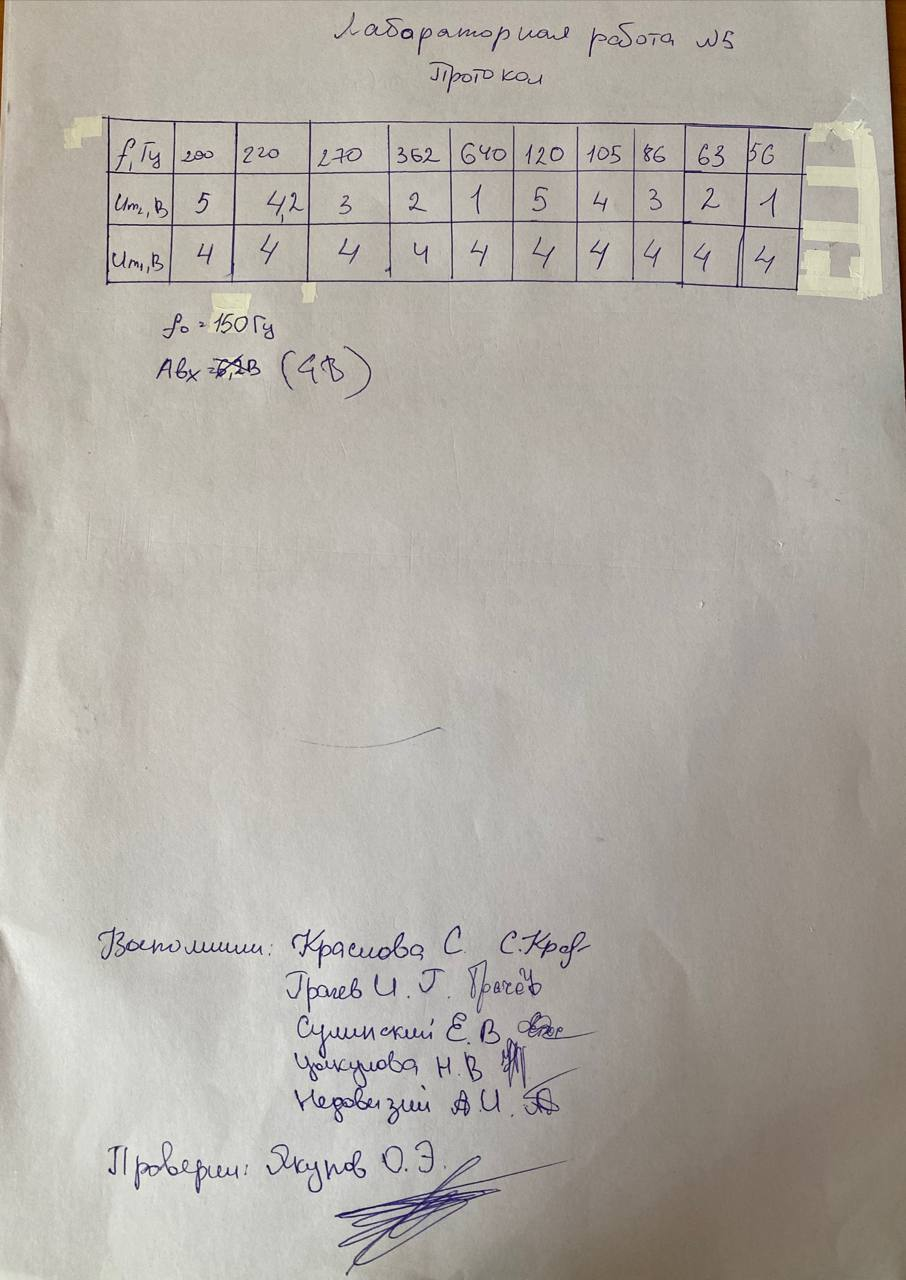 Лабараторная работа №5
Протокол
f, Гц 200 220 270 362 640 120 105 86 63 56
Um₂, В 5 4,2 3 2 1 5 4 3 2 1
Um₁, В 4 4 4 4 4 4 4 4 4 4
f₀ = 150 Гц
Aвх = В (4В)
Выполнили: Краснова С. С.Крас
Грачев И. Г. Грачёв
Сулинский Е. В.
Н. В
Недовизий А. И.
Проверил: Якупов О. Э.